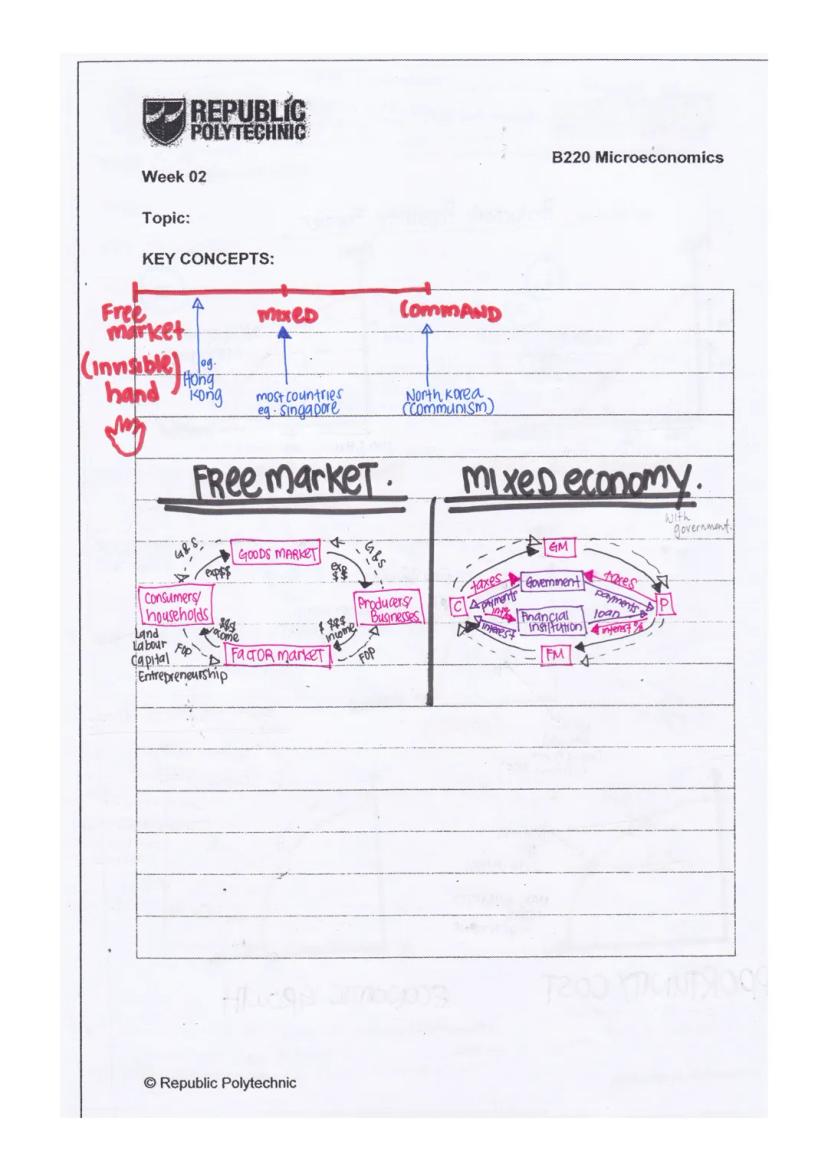 REPUBLIC
POLYTECHNIC
B220 Microeconomics
Week 02
Topic:
KEY CONCEPTS:
Free market
(invisible) hand
mixed
COMMAND
eg. Hong Kong
most countries
eg. singapore
North Korea
(communism)
FREE MARKET.
MIXED ECONOMY.
with
government.
G&S
GOODS MARKET
G&S
exp$$
exp
$$
Consumers/
households
Producers/
Businesses
Land
Labour
Capital
Entrepreneurship
FOP
$$$
income
$ $$$
income
FACTOR MARKET
FOP
GM
taxes
Government
taxes
C
payments
payments
P
Financial
institution
loan
interest
interest
FM
OPPORTUNITY COST
ECONOMIC GROWTH
© Republic Polytechnic